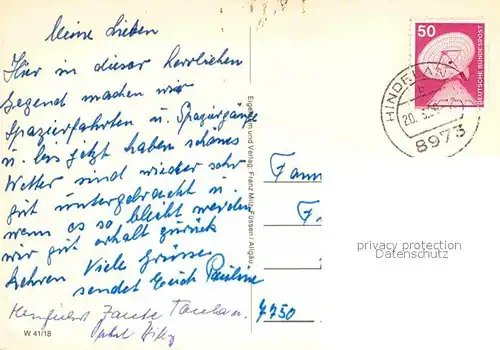 Meine Lieben
Hier in dieser herrlichen
Gegend machen wir
Spazierfahrten u. Spaziergänge
u. bis jetzt haben schönes
Wetter sind wieder sehr
gut untergebracht u.
wenn es so bleibt werden
wir gut erholt zurück
kehren Viele Grüsse
sendet Euch Pauline
Tante
W 41/18
Eigentum und Verlag: Franz Milz, Füssen / Allgäu
50
DEUTSCHE BUNDESPOST
HINDELANG
20.
8973
Fam
F
7750
privacy protection
Datenschutz